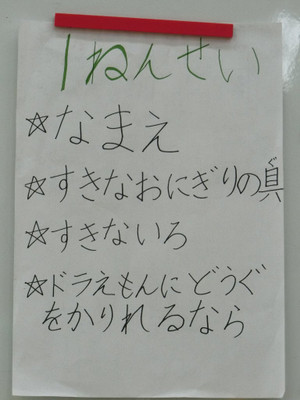 1ねんせい
☆なまえ
☆すきなおにぎりの具
ぐ
☆すきないろ
☆ドラえもんにどうぐ
をかりれるなら